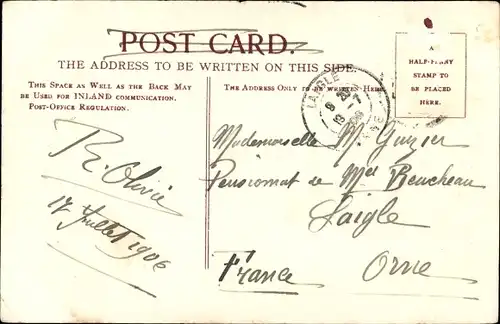 POST CARD.
THE ADDRESS TO BE WRITTEN ON THIS SIDE.
THIS SPACE AS WELL AS THE BACK MAY
BE USED FOR INLAND COMMUNICATION.
POST-OFFICE REGULATION.
THE ADDRESS ONLY TO BE WRITTEN HERE.
A
HALF-PENNY
STAMP TO
BE PLACED
HERE.
LAIGLE
R. Olivie
17 Juillet 1906
Mademoiselle M.
Pensionnat de Mel Beucheau
Laigle
France Orne